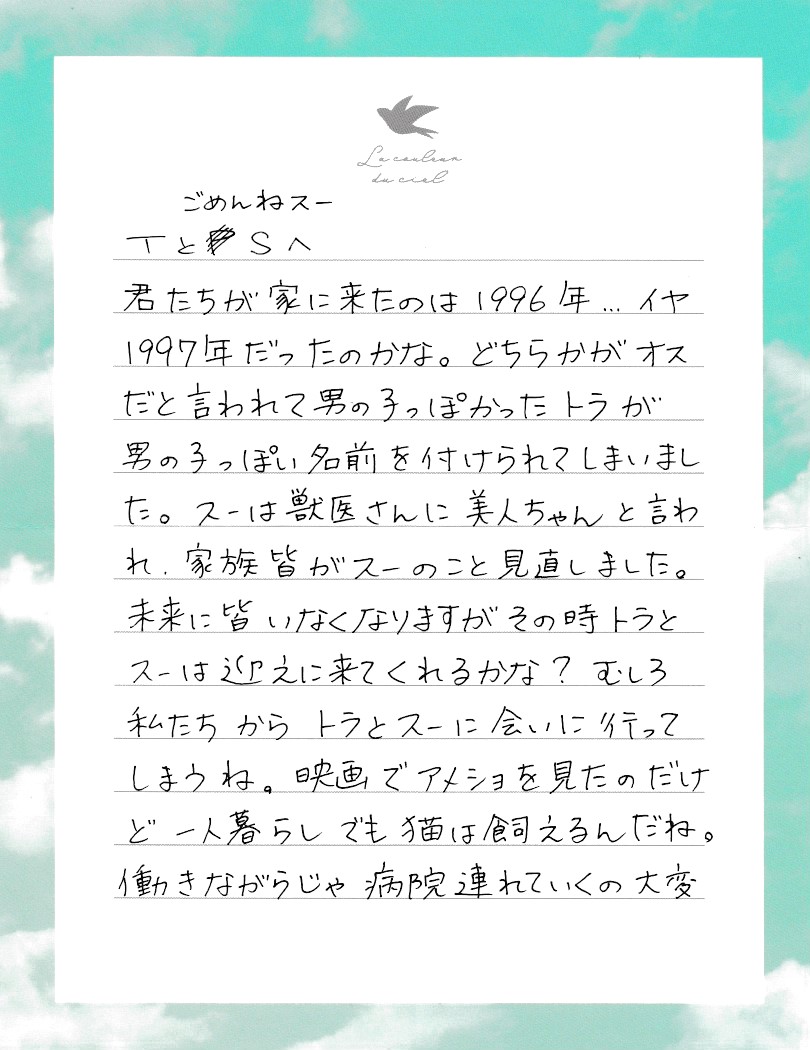 La couleur
du ciel
ごめんねスー
TとSへ
君たちが家に来たのは1996年…イヤ
1997年だったのかな。どちらかがオス
だと言われて男の子っぽかったトラが
男の子っぽい名前を付けられてしまいまし
た。スーは獣医さんに美人ちゃんと言わ
れ、家族皆がスーのこと見直しました。
未来に皆いなくなりますがその時トラと
スーは迎えに来てくれるかな?むしろ
私たちからトラとスーに会いに行って
しまうね。映画でアメショを見たのだけ
ど一人暮らしでも猫は飼えるんだね。
働きながらじゃ病院連れていくの大変